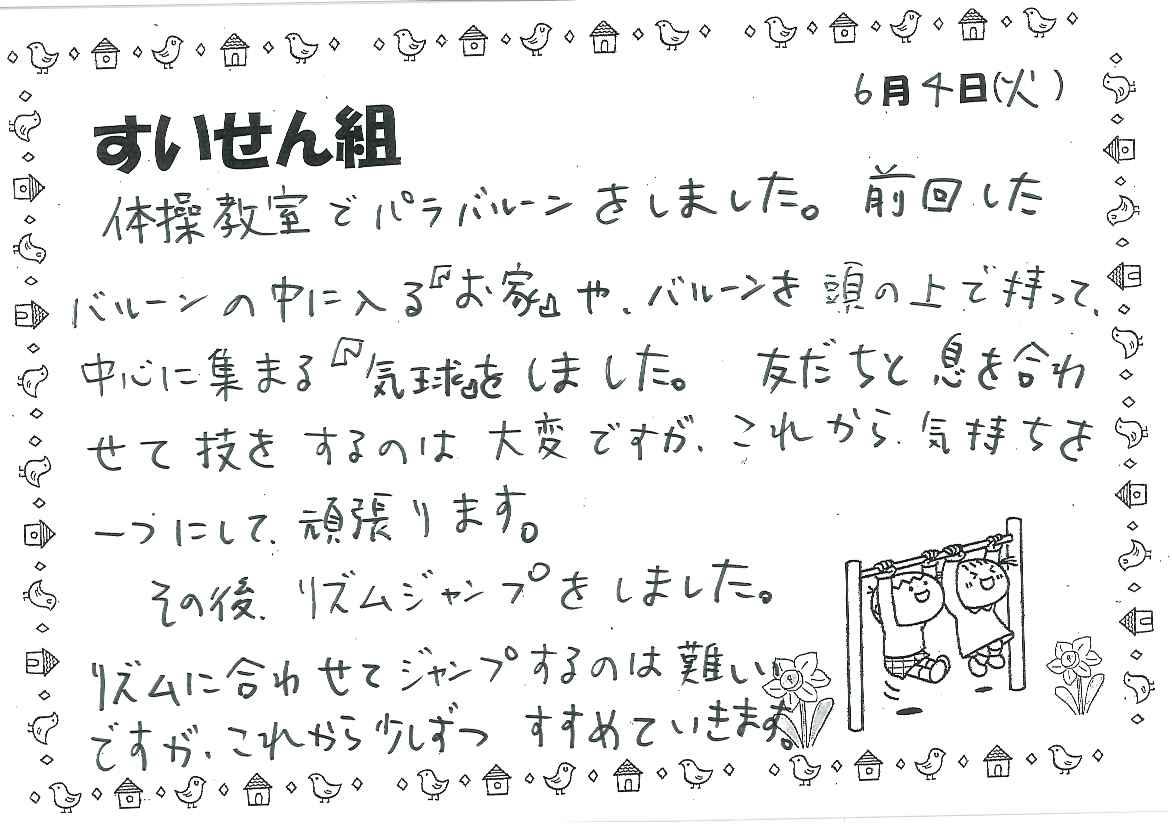 6月4日(火)
すいせん組
体操教室でパラバルーンをしました。前回した
バルーンの中に入る『お家』や、バルーンを頭の上で持って、
中心に集まる『気球』をしました。友だちと息を合わ
せて技をするのは大変ですが、これから、気持ちを
一つにして、頑張ります。
その後、リズムジャンプをしました。
リズムに合わせてジャンプするのは難しい
ですが、これから少しずつすすめていきます。